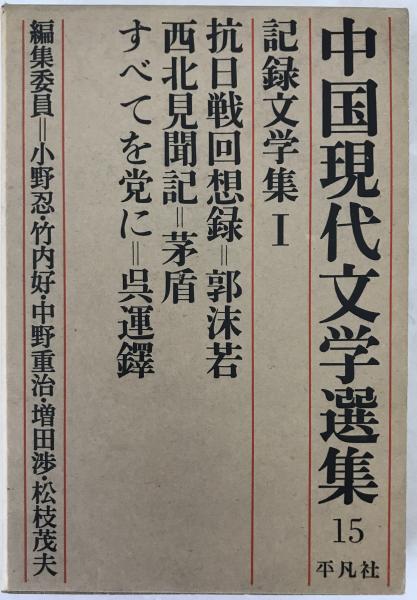 中国現代文学選集
15
平凡社
記録文学集Ⅰ
抗日戦回想録=郭沫若
西北見聞記=茅盾
すべてを党に=呉運鐸
編集委員=小野忍・竹内好・中野重治・増田渉・松枝茂夫